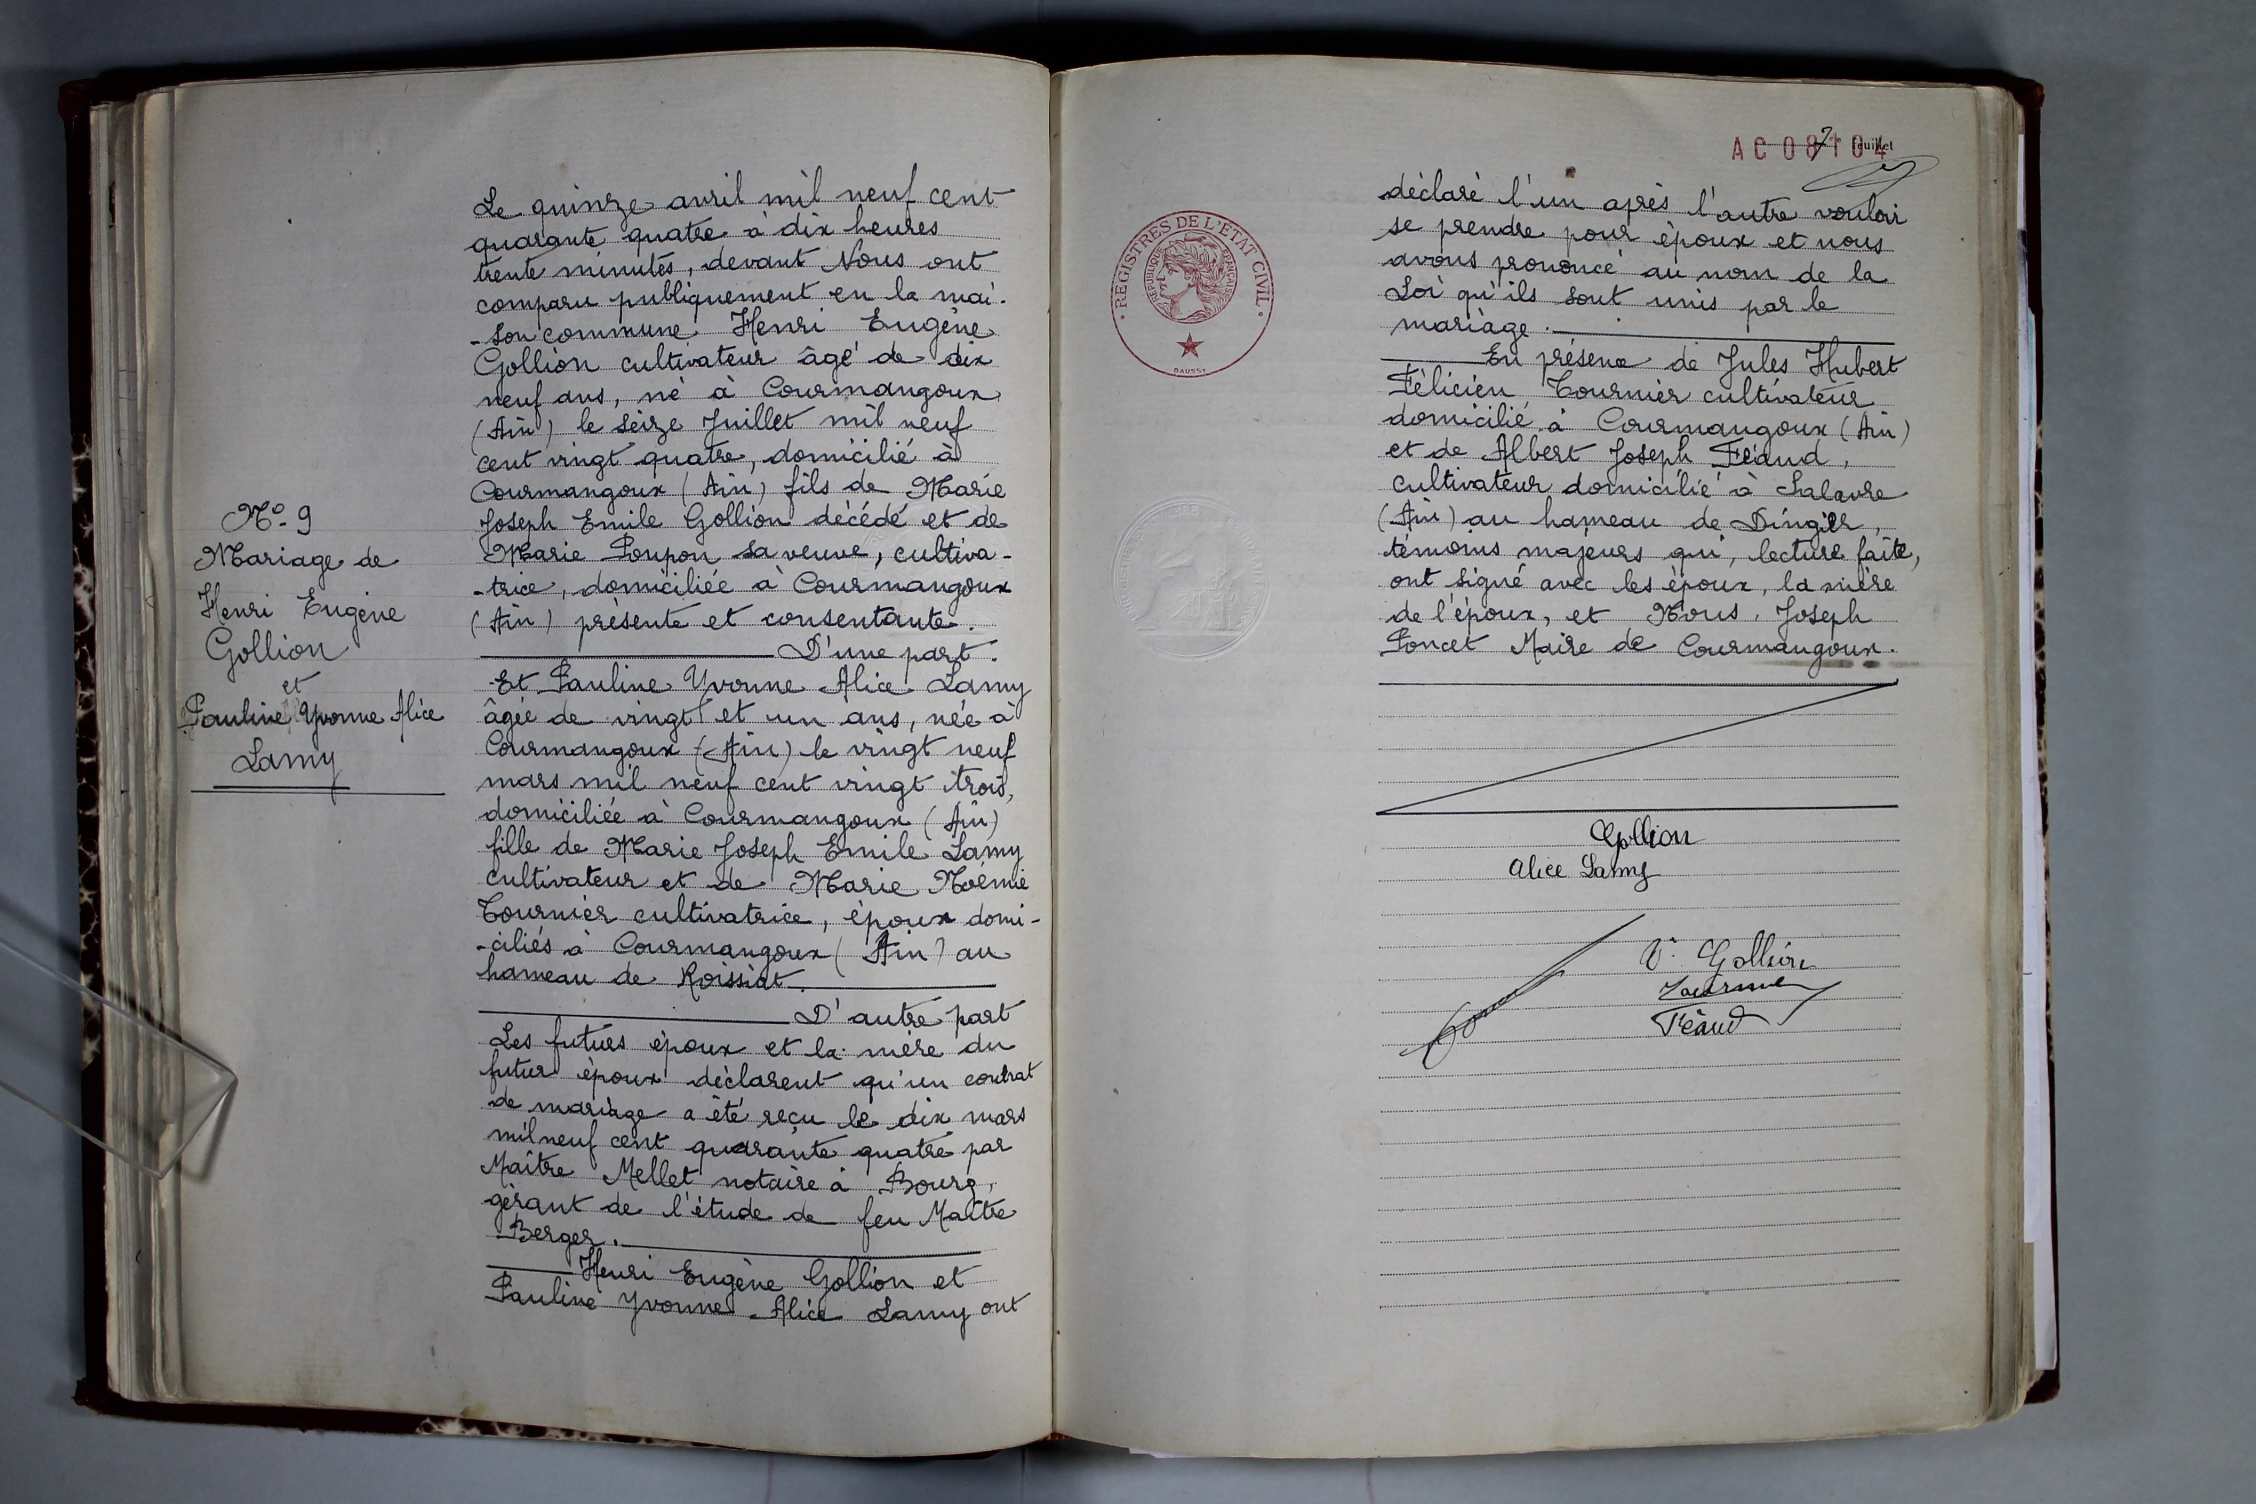 N° 9
Mariage de
Henri Eugène
Gollion
et
Pauline Yvonne Alice
Lamy
Le quinze avril mil neuf cent
quarante quatre à dix heures
trente minutes, devant Nous ont
comparu publiquement en la mai-
-son commune Henri Eugène
Gollion cultivateur âgé de dix
neuf ans, né à Courmangoux
(Ain) le seize Juillet mil neuf
cent vingt quatre, domicilié à
Courmangoux (Ain) fils de Marie
Joseph Emile Gollion décédé et de
Marie Poupon sa veuve, cultiva-
-trice, domiciliée à Courmangoux
(Ain) présente et consentante.
D'une part.
Et Pauline Yvonne Alice Lamy
âgée de vingt et un ans, née à
Courmangoux (Ain) le vingt neuf
mars mil neuf cent vingt trois,
domiciliée à Courmangoux (Ain)
fille de Marie Joseph Emile Lamy
cultivateur et de Marie Noémie
Tournier cultivatrice, époux domi-
-ciliés à Courmangoux (Ain) au
hameau de Roissiat.
D'autre part
Les futurs époux et la mère du
futur époux déclarent qu'un contrat
de mariage a été reçu le dix mars
mil neuf cent quarante quatre par
Maître Mellet notaire à Bourg,
gérant de l'étude de feu Maître
Berger.
Henri Eugène Gollion et
Pauline Yvonne Alice Lamy ont
AC 08104
7 feuillet
REGISTRES DE L'ETAT CIVIL
REPUBLIQUE FRANCAISE
déclaré l'un après l'autre vouloir
se prendre pour époux et nous
avons prononcé au nom de la
Loi qu'ils sont unis par le
mariage.
En présence de Jules Hubert
Félicien Tournier cultivateur
domicilié à Courmangoux (Ain)
et de Albert Joseph Féaud,
cultivateur domicilié à Salavre
(Ain) au hameau de Dingier,
témoins majeurs qui, lecture faite,
ont signé avec les époux, la mère
de l'époux, et Nous, Joseph
Poncet Maire de Courmangoux.
Gollion
Alice Lamy
Vve Gollion
Tournier
Féaud